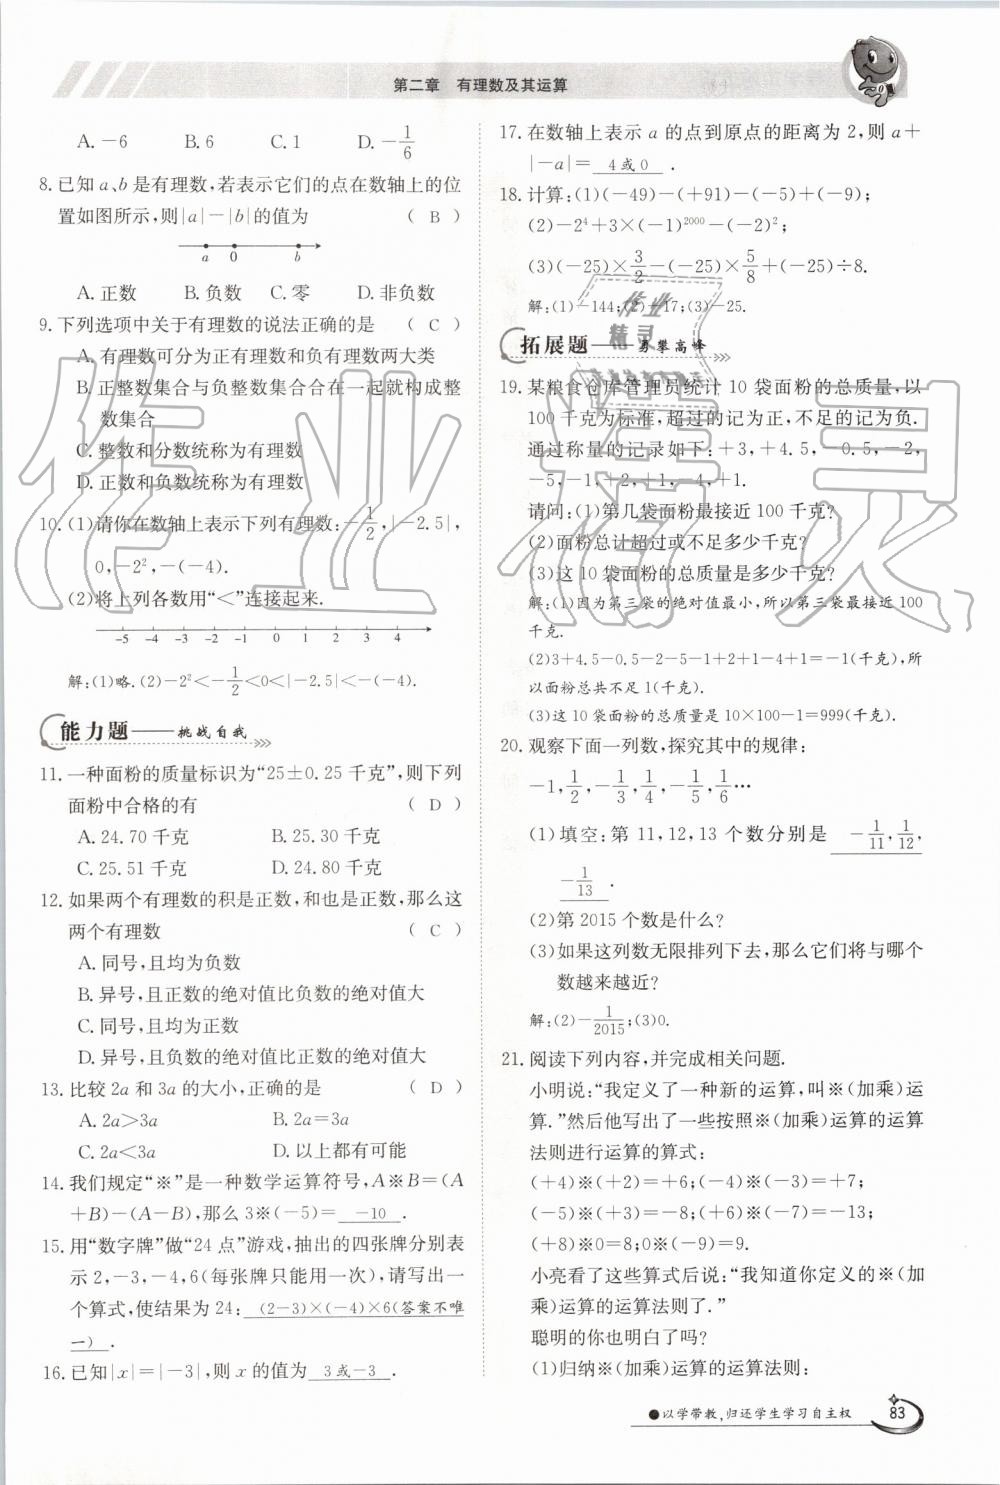 第二章　有理数及其运算
A.-6　B.6　C.1　D.-1/6
8.已知a、b是有理数,若表示它们的点在数轴上的位
置如图所示,则|a|-|b|的值为　( B )
a　0　b
A.正数　B.负数　C.零　D.非负数
9.下列选项中关于有理数的说法正确的是　( C )
A.有理数可分为正有理数和负有理数两大类
B.正整数集合与负整数集合合在一起就构成整
数集合
C.整数和分数统称为有理数
D.正数和负数统称为有理数
10.(1)请你在数轴上表示下列有理数:-1/2,|-2.5|,
0,-2²,-(-4).
(2)将上列各数用“<”连接起来.
-5 -4 -3 -2 -1 0 1 2 3 4
解:(1)略.(2)-2²<-1/2<0<|-2.5|<-(-4).
能力题——挑战自我
11.一种面粉的质量标识为“25±0.25千克”,则下列
面粉中合格的有　( D )
A.24.70千克　B.25.30千克
C.25.51千克　D.24.80千克
12.如果两个有理数的积是正数,和也是正数,那么这
两个有理数　( C )
A.同号,且均为负数
B.异号,且正数的绝对值比负数的绝对值大
C.同号,且均为正数
D.异号,且负数的绝对值比正数的绝对值大
13.比较2a和3a的大小,正确的是　( D )
A.2a>3a　B.2a=3a
C.2a<3a　D.以上都有可能
14.我们规定“※”是一种数学运算符号,A※B=(A
+B)-(A-B),那么3※(-5)= -10 .
15.用“数字牌”做“24点”游戏,抽出的四张牌分别表
示2,-3,-4,6(每张牌只能用一次),请写出一
个算式,使结果为24: (2-3)×(-4)×6(答案不唯
一) .
16.已知|x|=|-3|,则x的值为 3或-3 .
17.在数轴上表示a的点到原点的距离为2,则a+
|-a|= 4或0 .
18.计算:(1)(-49)-(+91)-(-5)+(-9);
(2)-2⁴+3×(-1)²⁰⁰⁰-(-2)²;
(3)(-25)×3/2-(-25)×5/8+(-25)÷8.
解:(1)-144;(2)-17;(3)-25.
拓展题——勇攀高峰
19.某粮食仓库管理员统计10袋面粉的总质量,以
100千克为标准,超过的记为正,不足的记为负.
通过称量的记录如下:+3,+4.5,-0.5,-2,
-5,-1,+2,+1,-4,+1.
请问:(1)第几袋面粉最接近100千克?
(2)面粉总计超过或不足多少千克?
(3)这10袋面粉的总质量是多少千克?
解:(1)因为第三袋的绝对值最小,所以第三袋最接近100
千克.
(2)3+4.5-0.5-2-5-1+2+1-4+1=-1(千克),所
以面粉总共不足1(千克).
(3)这10袋面粉的总质量是10×100-1=999(千克).
20.观察下面一列数,探究其中的规律:
-1,1/2,-1/3,1/4,-1/5,1/6…
(1)填空:第11,12,13个数分别是 -1/11,1/12,
-1/13 .
(2)第2015个数是什么?
(3)如果这列数无限排列下去,那么它们将与哪个
数越来越近?
解:(2)-1/2015;(3)0.
21.阅读下列内容,并完成相关问题.
小明说:“我定义了一种新的运算,叫※(加乘)运
算.”然后他写出了一些按照※(加乘)运算的运算
法则进行运算的算式:
(+4)※(+2)=+6;(-4)※(-3)=+7;
(-5)※(+3)=-8;(+6)※(-7)=-13;
(+8)※0=8;0※(-9)=9.
小亮看了这些算式后说:“我知道你定义的※(加
乘)运算的运算法则了.”
聪明的你也明白了吗?
(1)归纳※(加乘)运算的运算法则:
●以学带教,归还学生学习自主权
83
作业精灵
作业
精灵